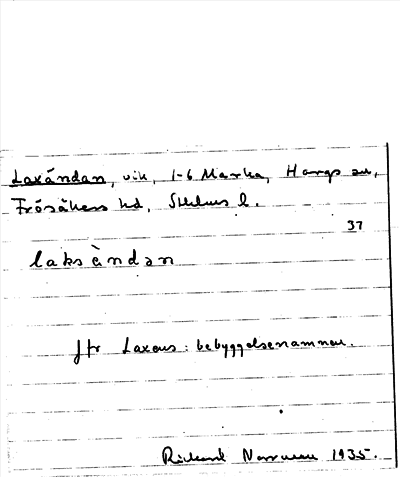 Laxändan, vik, 1-6 Marka, Hargs sn,
Frösåkers hd, Sthlms l.
37
laksàndan
Jfr Laxens: bebyggelsenamnen.
Rickard 1935.